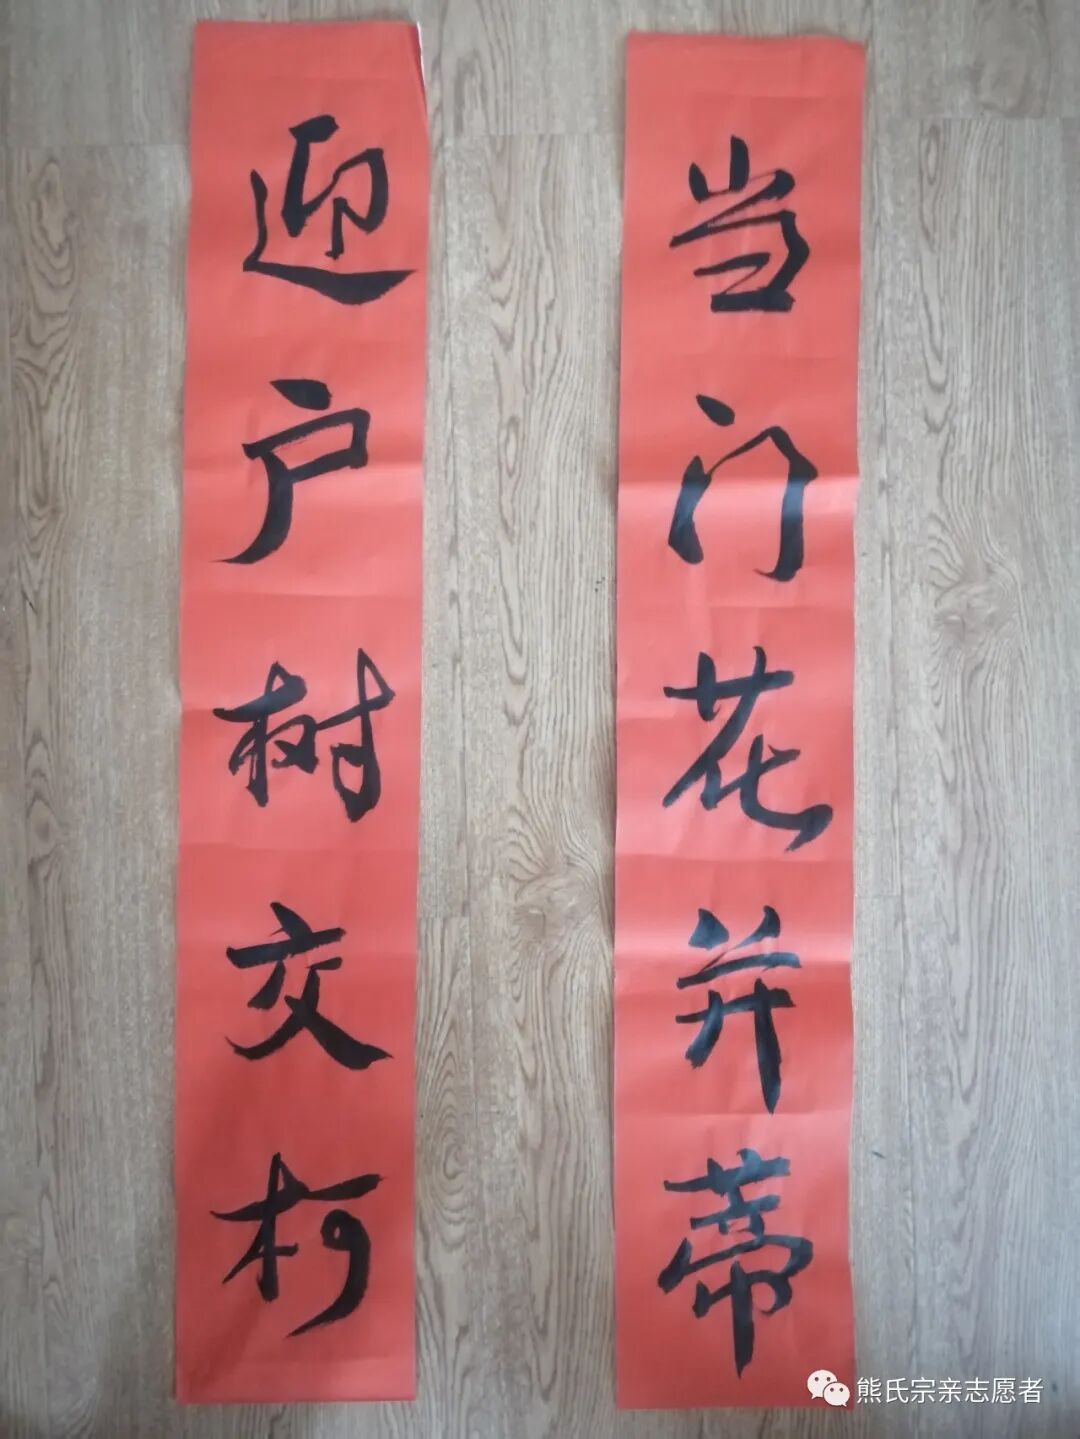 当门花并蒂
迎户树交柯
熊氏宗亲志愿者